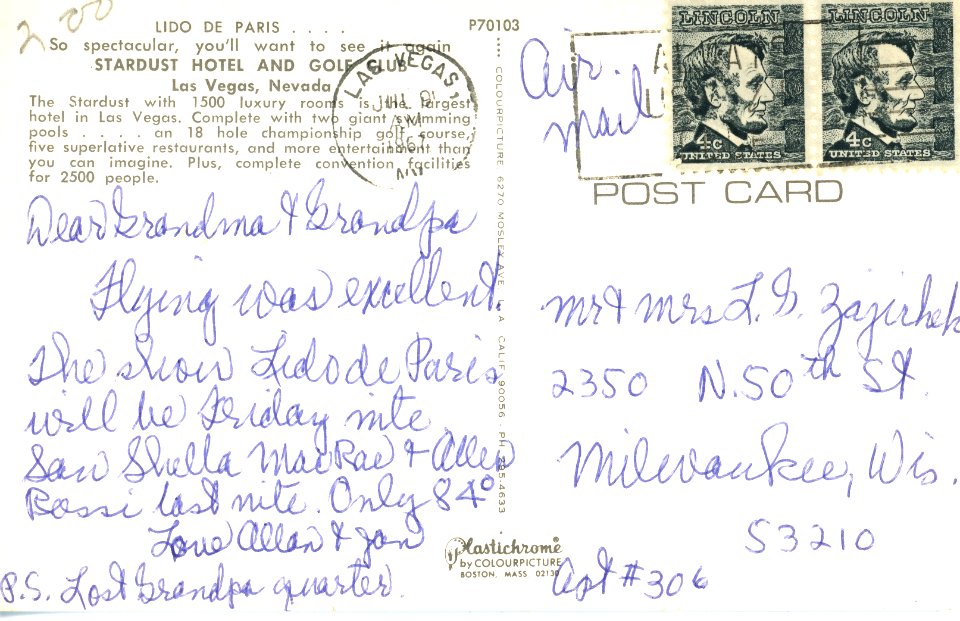 2.00
LIDO DE PARIS . . . .
So spectacular, you'll want to see it again
STARDUST HOTEL AND GOLF CLUB
Las Vegas, Nevada
The Stardust with 1500 luxury rooms is the largest
hotel in Las Vegas. Complete with two giant swimming
pools . . . . an 18 hole championship golf course,
five superlative restaurants, and more entertainment than
you can imagine. Plus, complete convention facilities
for 2500 people.
Dear Grandma & Grandpa
Flying was excellent.
The show Lido de Paris
will be Friday nite.
Saw Shella MacRae & Allen
Rossi last nite. Only 84°
Love Allan & Jan
P.S. Lost Grandpa quarter.
P70103
COLOURPICTURE 6270 MOSLEY AVE. L. A. CALIF. 90056 - PH. 295-4633
Plastichrome®
by COLOURPICTURE
BOSTON, MASS 02130
LAS VEGAS,
Air
mail
LINCOLN
4c
UNITED STATES
LINCOLN
4c
UNITED STATES
POST CARD
Mr & Mrs L. G.
2350 N. 50th St.
Milwaukee, Wis.
53210
Apt #306